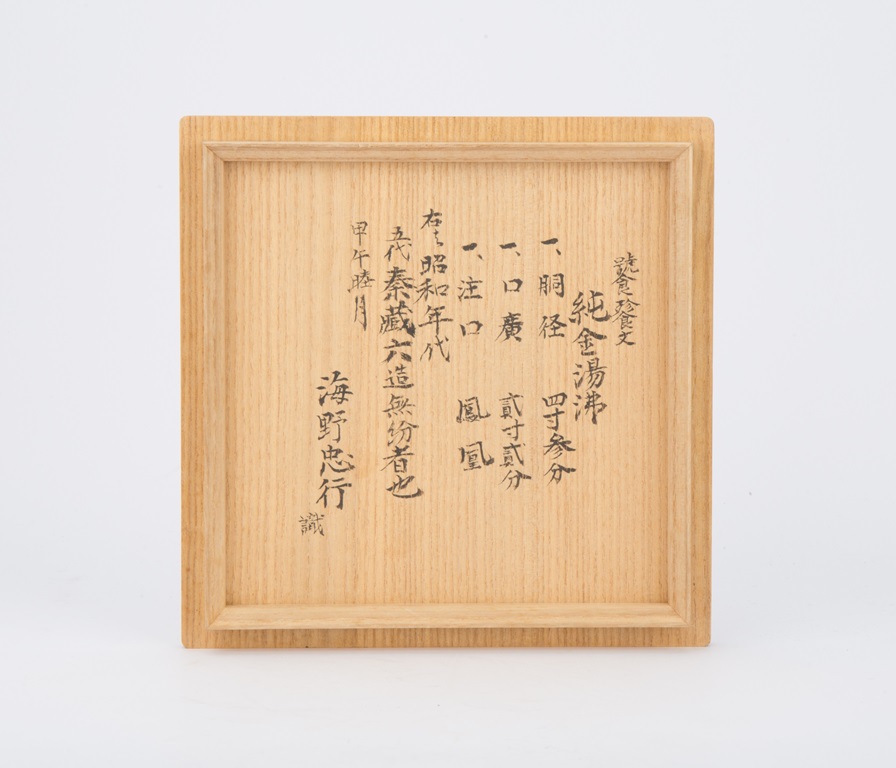 號食珍食文
純金湯沸
一、胴径 四寸参分
一、口廣 貳寸貳分
一、注口 鳳凰
右者昭和年代
五代秦藏六造無紛者也
甲午睦月
海野忠行
識